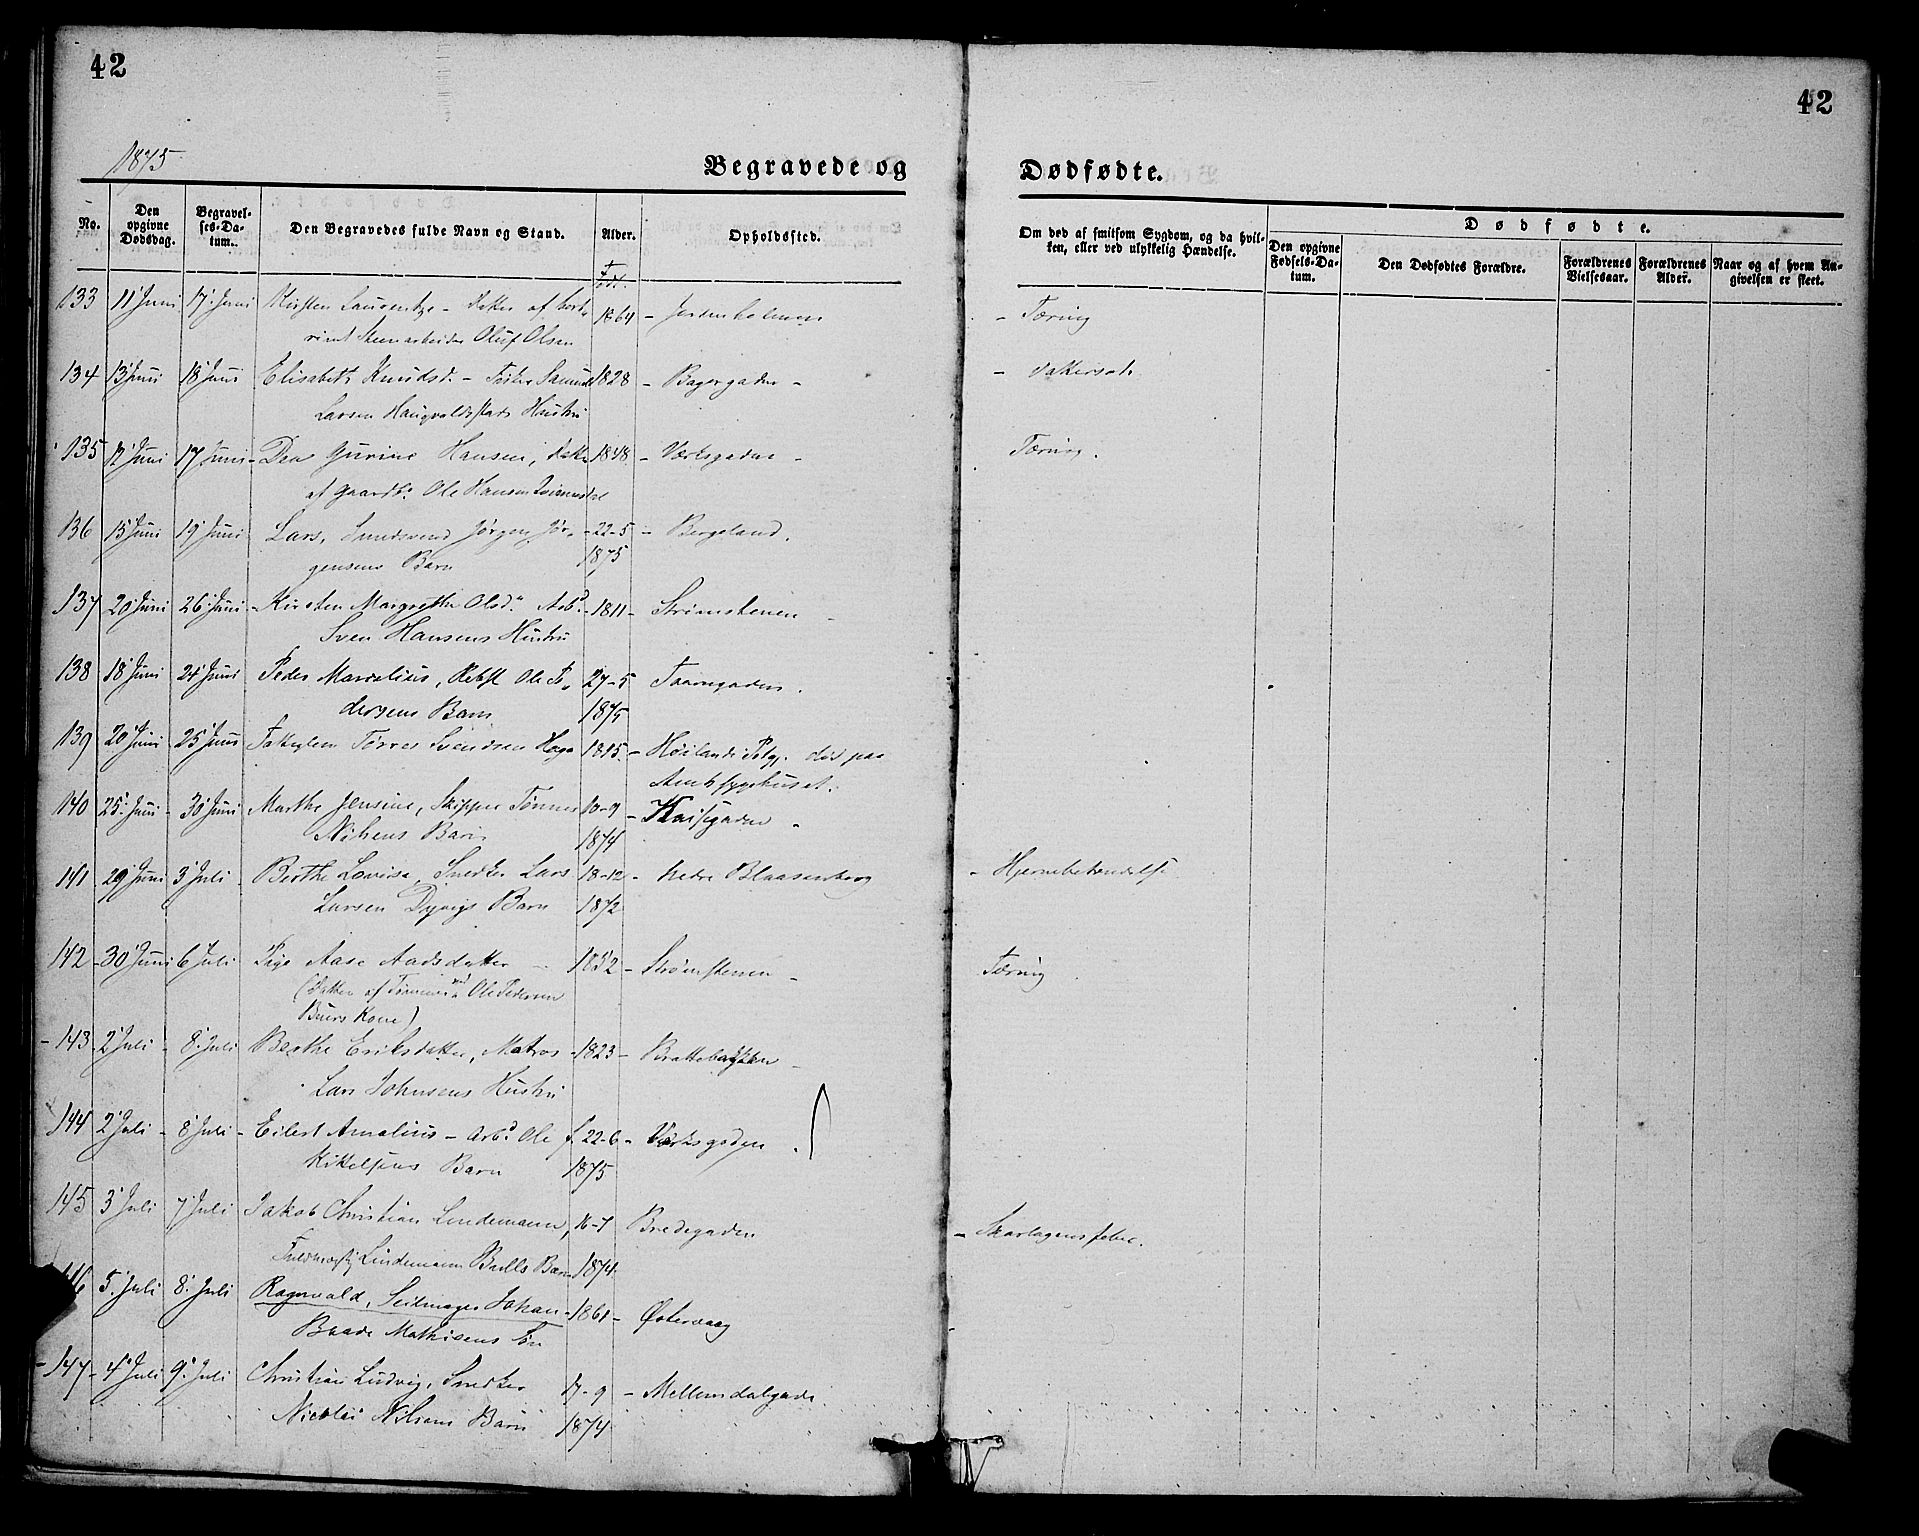 42
42
1875
Begravede og
Dødfødte.
No.
Den opgivne Dødsdag.
Begravel-ses-Da-tum.
Den Begravedes fulde Navn og Stand.
Alder.
Opholdssted.
Om død af smitsom Sygdom, og da hvil-
ken, eller ved ulykkelig Hændelse.
Dødfødte.
Den opgivne Fødsels-Da-tum.
Den Dødfødtes Forældre.
Forældrenes Vielsesaar.
Forældrenes Alder.
Naar og af hvem An-givelsen er skeet.
Født.
133 11 Juni 17 Juni Kirsten - Datter af 1864 - - Tæring
Steenarbeider Oluf Olsen
134 13 Juni 18 Juni Elisabeth Knudsd. - 1828 - Bagergaden -
Larsen Haugvaldstads Hustru
135 12 Juni 17 Juni - Dea Gurine Hansen, Datter 1848 - Værksgaden - Tæring.
af Gaardbr. Ole Hansen
136 15 Juni 19 Juni Lars, Jørgen Jør- - 22-5 - Bergeland.
gensens Barn 1875
137 20 Juni 26 Juni - Kirsten Margrethe Olsd. Arbd. - 1811 - Strømstenen -
Sven Hansens Hustru
138 18 Juni 24 Juni Peder Marcelius, Rebsl. Ole Pe- 27-5 Taarngaden.
dersens Barn 1875
139 20 Juni 25 Juni Fattiglem Tørres Svendsen Haga 1815. - Høilands Pstgj. død paa
Amtssygehuset.
140 25. Juni - 30 Juni Marthe Jensine, Skipper Tønnes 10-9 -
Nilsens Barn 1874
141 29 Juni 3 Juli Berthe Lovise, Snedker Lars 18-12 - Nedre Blaasenberg - Hjernebetændelse
Larsen Dyvigs Barn 1872
142 - 30 Juni 6 Juli Pige Aase Aadsdatter - 1852 - Strømstenen - Tæring
(Datter af Ole Pedersen
Buers Kone)
- 143 - 2 Juli - 8. Juli Berthe Eriksdatter, Matros - 1823 - Brattebakken -
Lars Johnsens Hustru
144 2 Juli - 8 Juli - Eilert Amalius - Arbd. Ole f. 22-6 - Værksgaden.
Mikkelsens Barn 1875
145 3 Juli 7 Juli Jakob Christian Lindemann, 16-7 Bredegaden - Skarlagensfeber.
Fuldmægtig Lindemann Bulls Barn 1874
146 5. Juli 8. Juli Ragnvald, Seilmager Johan - 1861 - Østervaag
Baade Mathisens Søn
- 147 - 4 Juli 9 Juli Christian Ludvig, Snedker 17-9 - Mellemdalgade.
Nicolai Nilsens Barn 1874